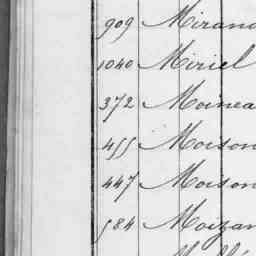 909 Miran
1040 Miriel
372 Moinea
455 Moison
447 Moison
584 Moizan